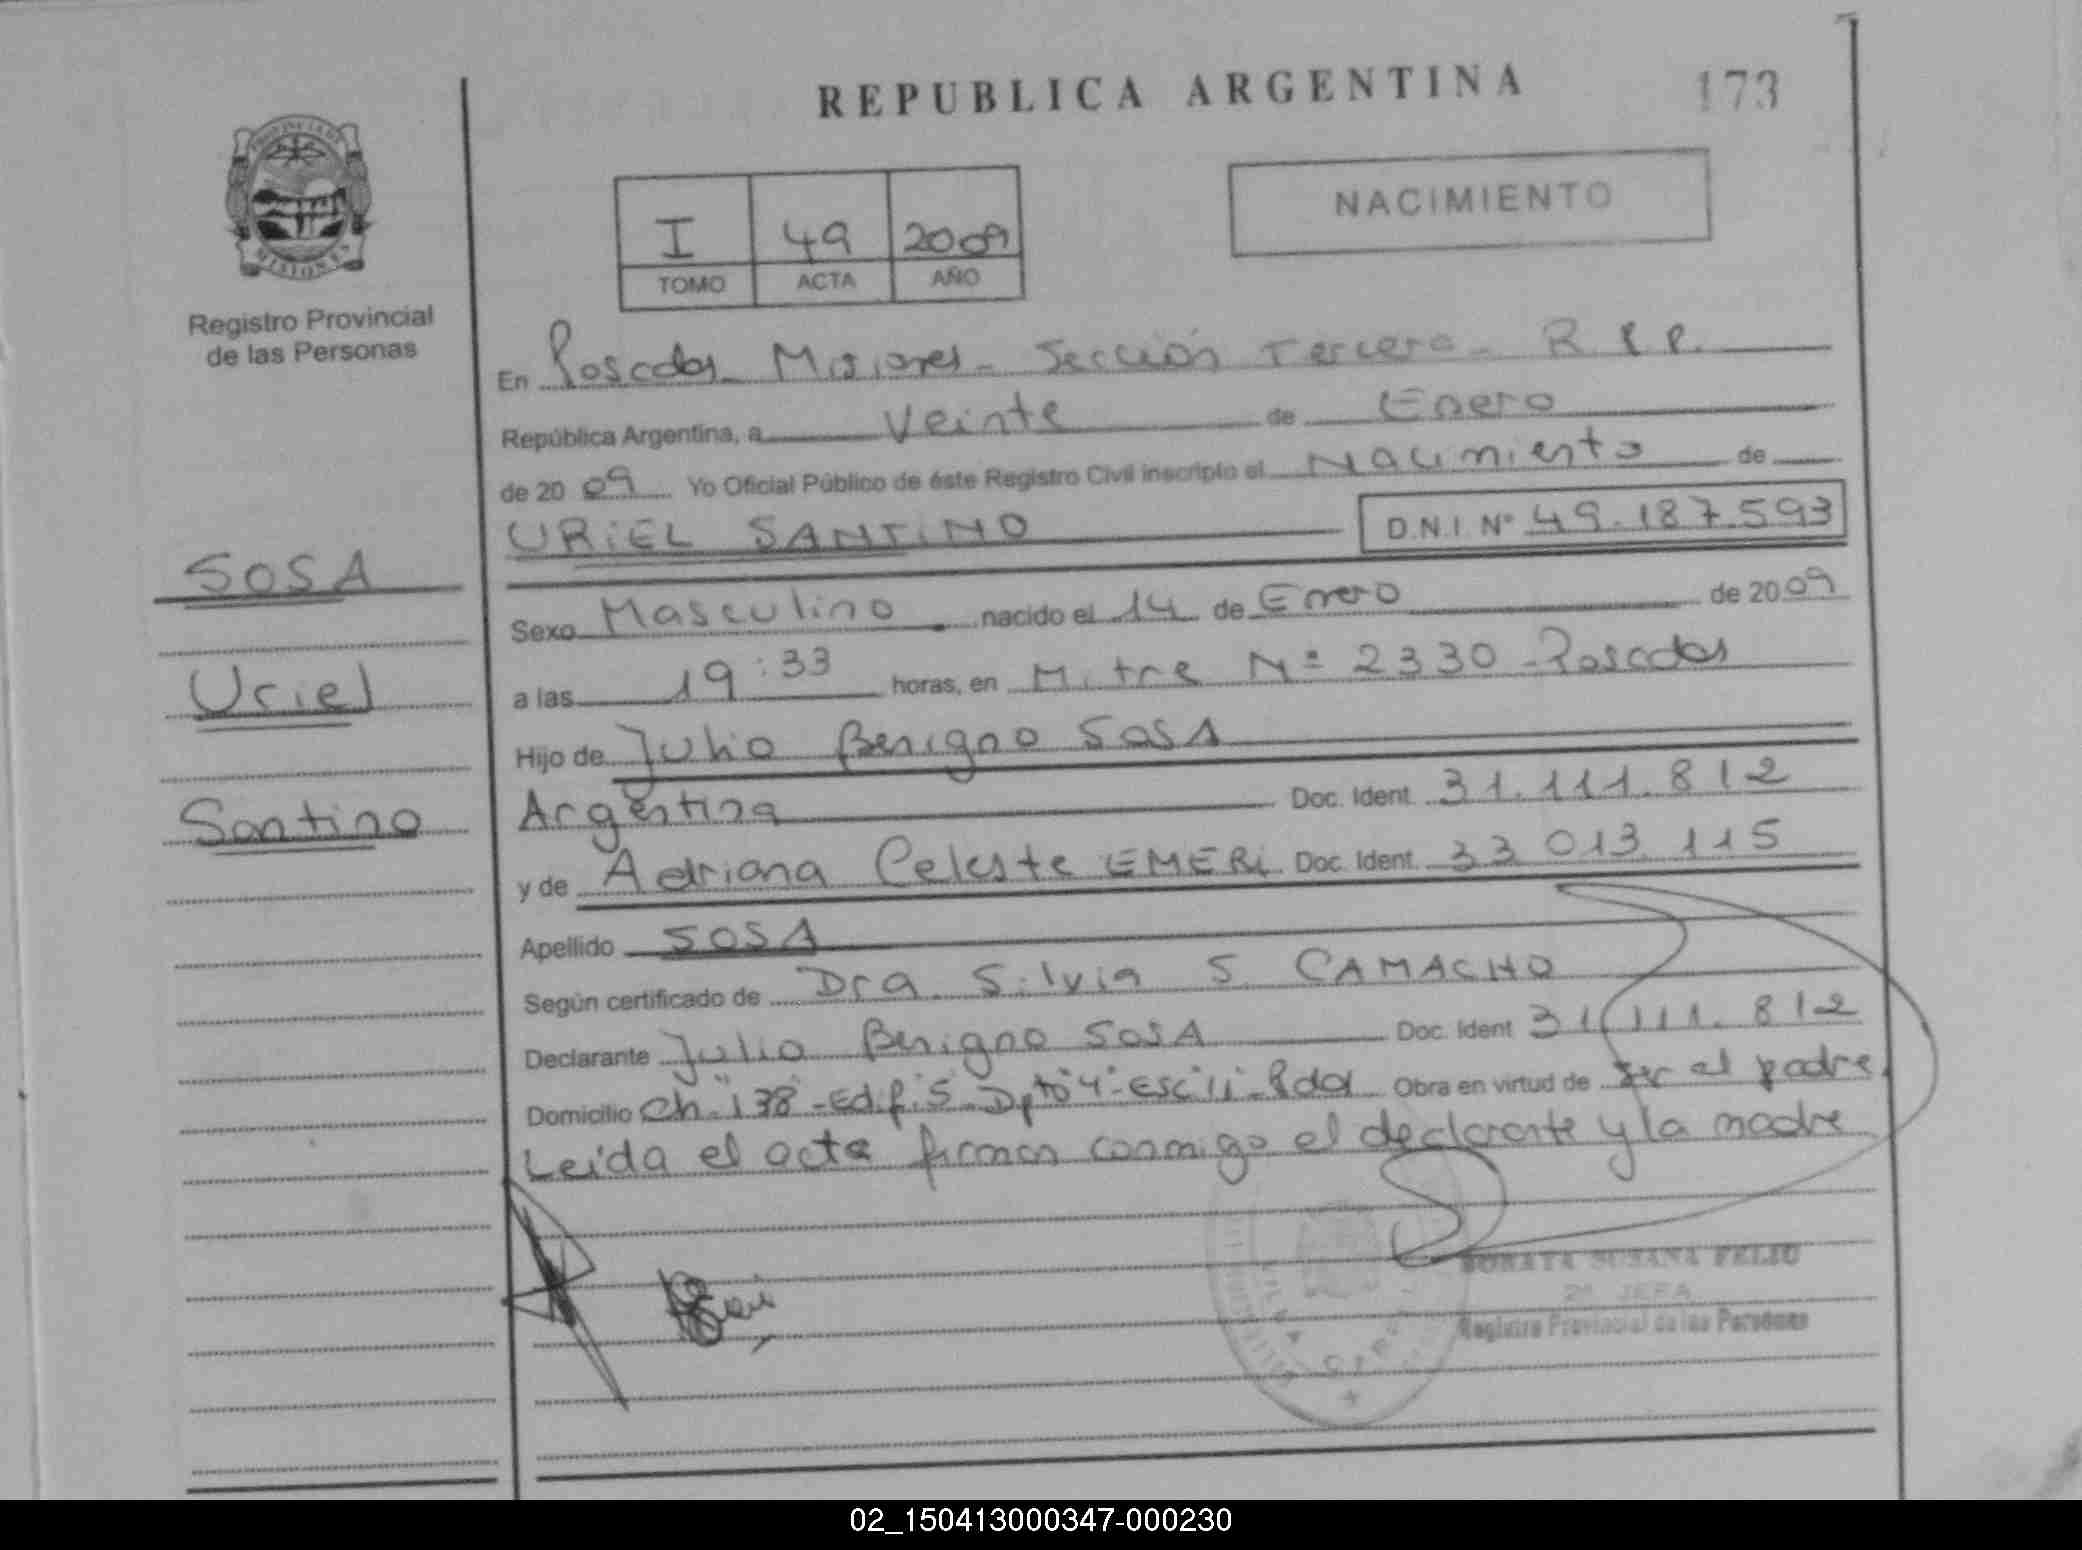 REPUBLICA ARGENTINA
173
PROVINCIA DE
MISIONES
Registro Provincial
de las Personas
I 49 2009
TOMO ACTA AÑO
NACIMIENTO
En Posadas Misiones - Sección Tercera - R.P.P.
República Argentina, a Veinte de Enero
de 2009 Yo Oficial Público de éste Registro Civil inscripto el Nacimiento de
URiEL SANTiNO D.N.I. Nº 49.187.593
SOSA
Uriel
Santino
Sexo Masculino nacido el 14 de Enero de 2009
a las 19:33 horas, en Mitre Nº 2330 - Posadas
Hijo de Julio Benigno SOSA
Argentina Doc. Ident. 31.111.812
y de Adriana Celeste EMERi Doc. Ident. 33 013 115
Apellido SOSA
Según certificado de Dra. Silvia S. CAMACHO
Declarante Julio Benigno SOSA Doc. Ident 31.111.812
Domicilio Ch. 138 - Edif. 5 - Dpto "4" - Esc "11" - Pdas Obra en virtud de ser el padre
Leída el acta firman conmigo el declarante y la madre
SUSANA FELIU
2º JEFA
Registro Provincial de las Personas
02_150413000347-000230